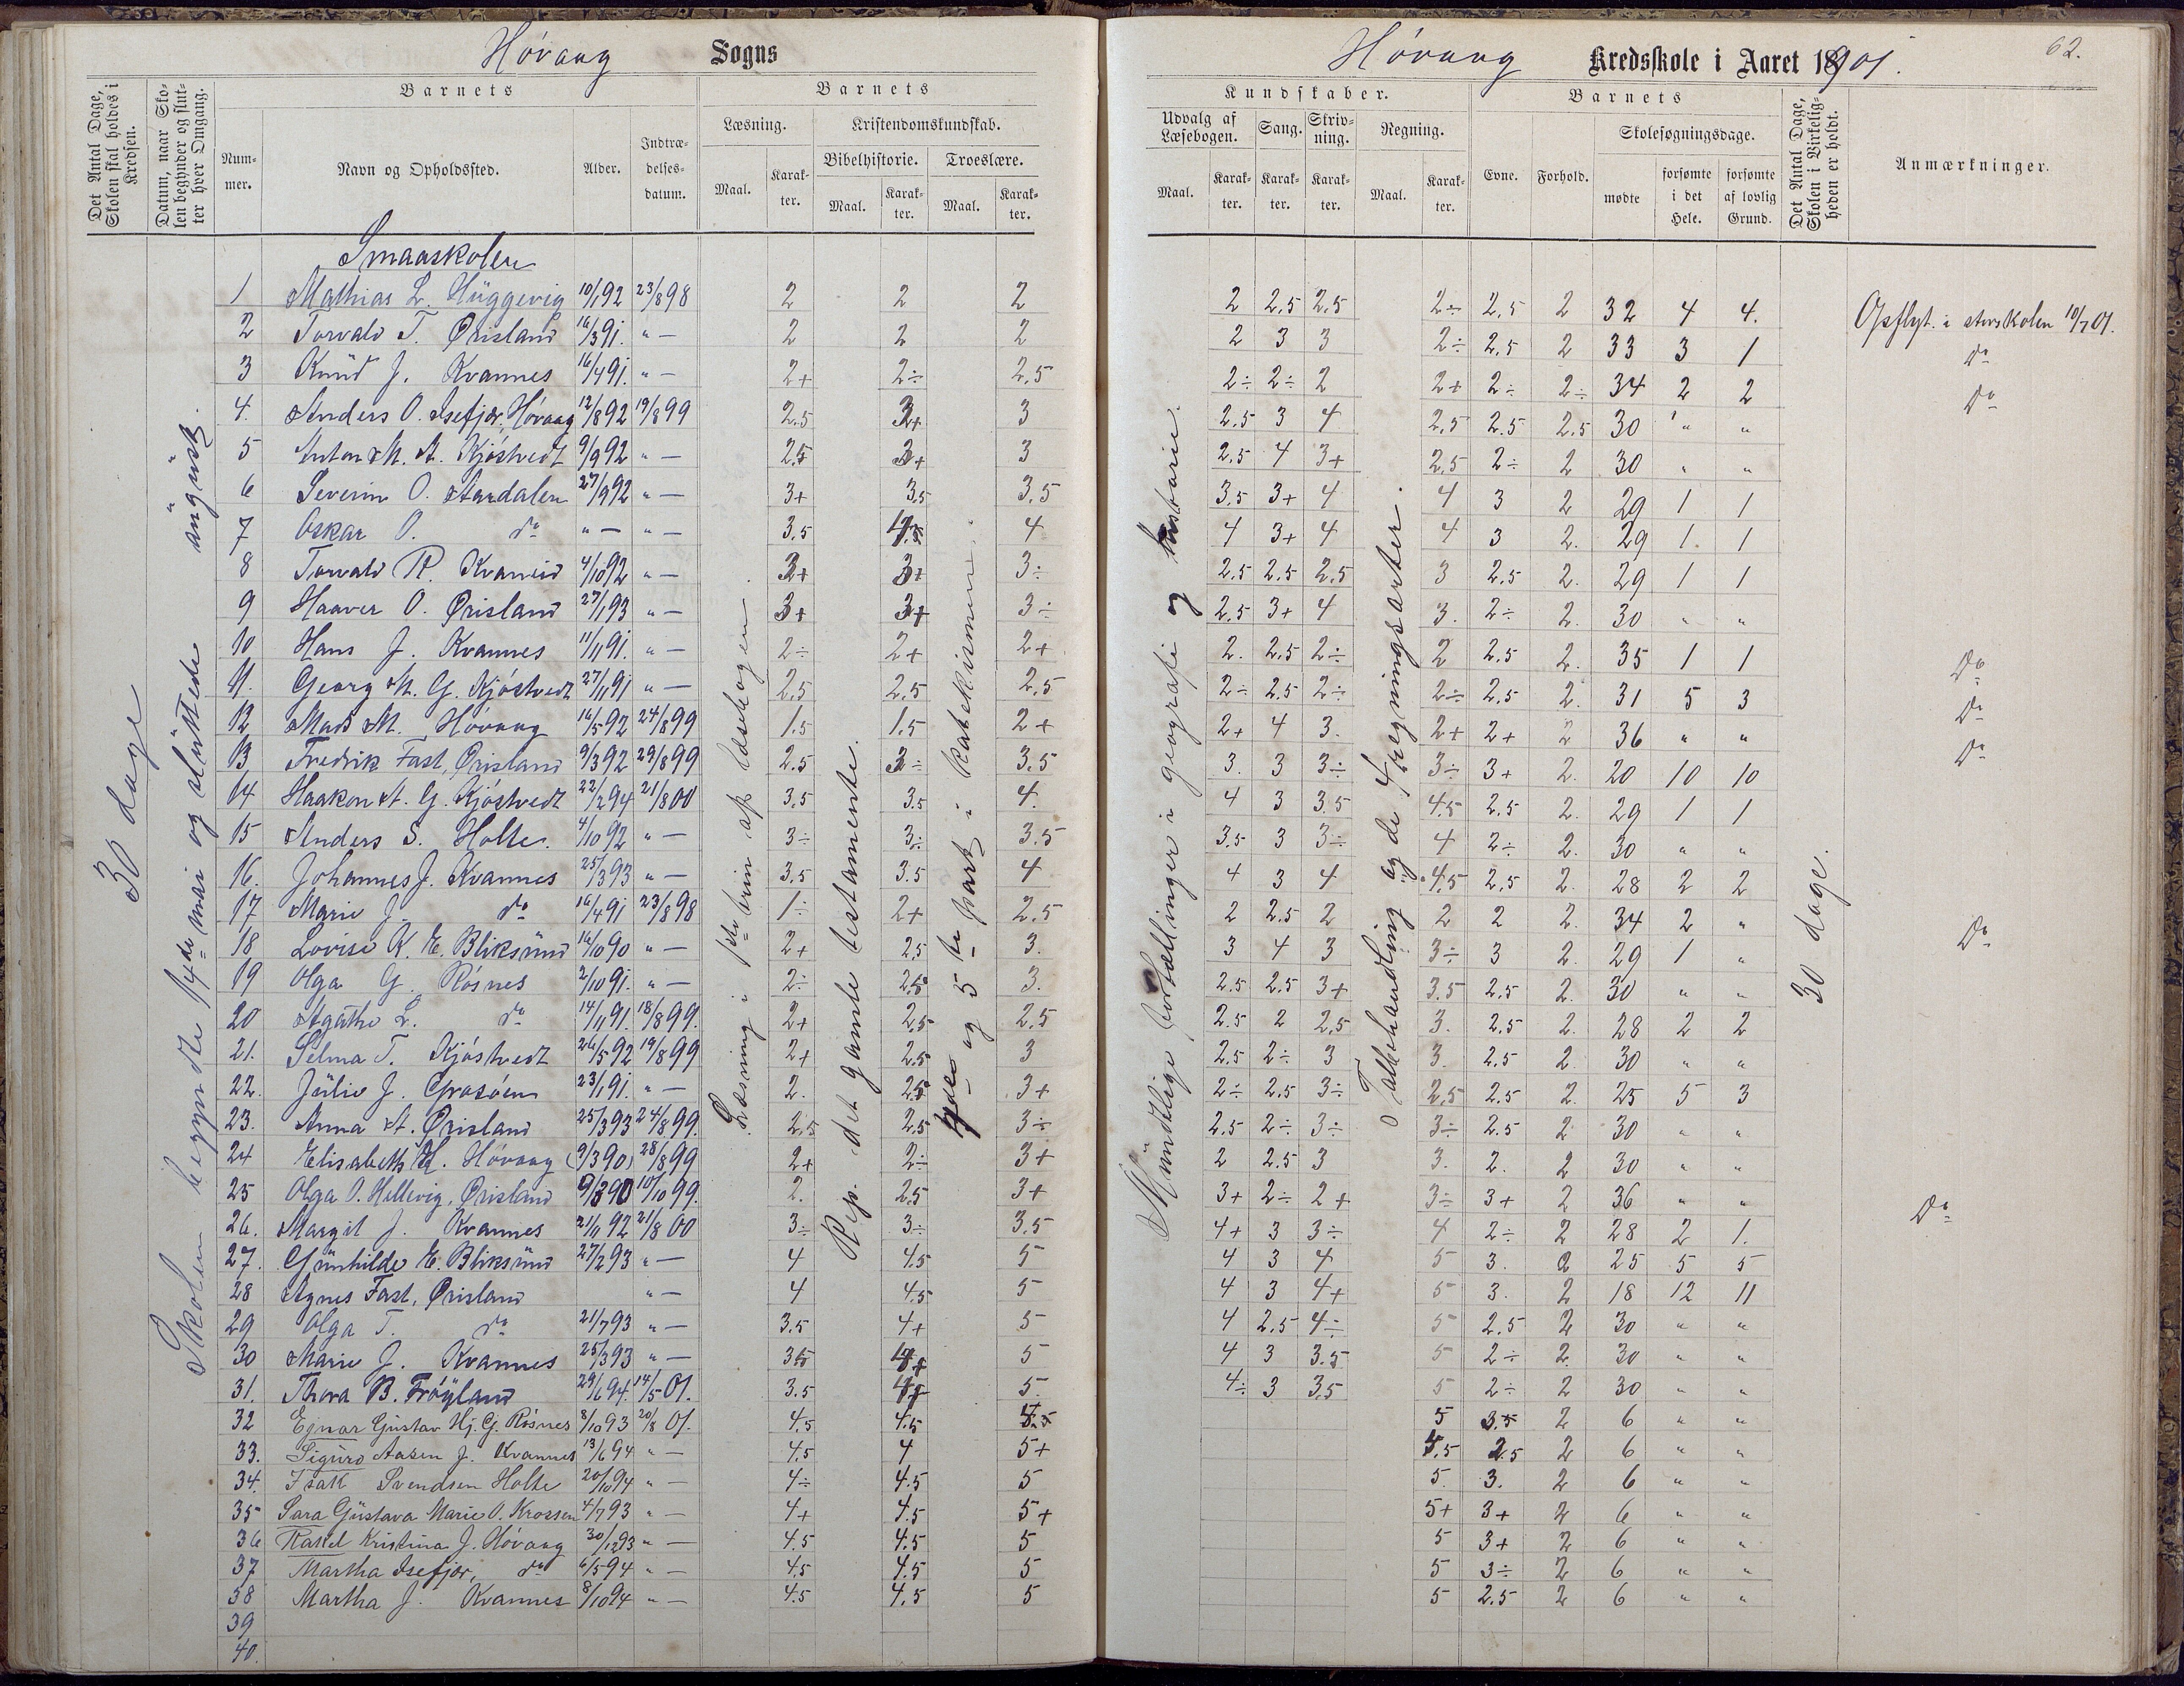 Høvaag Sogns
Høvaag Kredsskole i Aaret 1901.
62.
Det Antal Dage, Skolen skal holdes i Kredsen.
Datum, naar Skolen begynder og slutter hver Omgang.
Barnets
Barnets
Kundskaber.
Barnets
Det Antal Dage, Skolen i Virkeligheden er holdt.
Nummer.
Navn og Opholdssted.
Alder.
Indtrædelsesdatum.
Læsning.
Kristendomskundskab.
Bibelhistorie.
Troeslære.
Maal.
Karakter.
Maal.
Karakter.
Maal.
Karakter.
Udvalg af Læsebogen.
Sang.
Skrivning.
Regning.
Maal.
Karakter.
Karakter.
Karakter.
Maal.
Karakter.
Evne.
Forhold.
Skolesøgningsdage.
mødte
forsømte i det Hele.
forsømte af lovlig Grund.
Anmærkninger.
30 dage
Skolen begyndte 14de mai og sluttede
Læsning i 1ste trin af læsebogen.
Rep. det gamle testamente.
og 5te part i katekismen.
Mundtlige fortællinger i geografi og historie.
Talbehandling og de 4 regningsarter.
30 dage.
Smaaskolen
1 Mathias L. Hüggevig 10/1 92 23/8 98 2 2 2 2 2,5 2,5 2÷ 2,5 2 32 4 4. Opflyt. i storskolen 10/7 01.
2 Torvald T. Ørisland 16/3 91. „ — 2 2 2 2 3 3 2÷ 2,5 2 33 3 1 do
3 Knud J. Kvannes 16/4 91. „ — 2+ 2÷ 2,5 2÷ 2÷ 2 2+ 2÷ 2÷ 34 2 2 do
4. Anders O. Isefjær, Høvaag 12/8 92 19/8 99 2.5 3+ 3 2,5 3 4 2,5 2.5 2.5 30 „ „
5 Anton M. A. Kjøstvedt 9/9 92 „ — 2.5 3+ 3 2,5 4 3+ 2,5 2÷ 2 30 „ „
6 Severin O. Aardalen 27/9 92 „ — 3+ 3,5 3.5 3,5 3+ 4 4 3 2 29 1 1
7 Oskar O. do „ — „ — 3.5 4 4 3+ 4 4 3 2. 29 1. 1
8 Torvald R. Kvaneid 4/10 92 „ — 3+ 3+ 3÷ 2,5 2,5 2,5 3 2,5 2. 29 1 1
9 Haaver O. Ørisland 27/1 93 „ — 3+ 3+ 3÷ 2,5 3+ 4 3. 2÷ 2. 30 „ „
10 Hans J. Kvannes 11/11 91. „ — 2÷ 2+ 2+ 2. 2,5 2÷ 2 2,5 2. 35 1 1 do
11. Georg M. G. Kjøstvedt 27/11 91 „ — 2,5 2,5 2,5 2÷ 2,5 2÷ 2÷ 2,5 2. 31 5 3 do
12 Mads M. Høvaag 16/5 92 24/8 99 1.5 1.5 2+ 2+ 4 3. 2+ 2+ 2 36 „ „ do
13 Fredrik Fast, Ørisland 9/3 92 29/8 99 2.5 3÷ 3.5 3. 3 3÷ 3÷ 3+ 2. 20 10 10
14 Haakon A. G. Kjøstvedt 22/2 94 21/8 00 3,5 3.5 4. 4 3 3.5 4.5 2.5 2. 29 1 1
15 Anders S. Holte. 4/10 92 „ — 3÷ 3÷ 3.5 3.5 3 3÷ 4 2÷ 2. 30 „ „
16. Johannes J. Kvannes 25/3 93 „ — 3.5 3.5 4 4 3 4 4.5 2,5 2. 28 2 2
17 Marie J. do 16/4 91 23/8 98 1÷ 2+ 2.5 2 2.5 2 2 2 2. 34 2 „ do
18 Lovise K. E. Bliksund 16/10 90 „ — 2+ 2,5 3. 3 4 3 3÷ 3 2. 29 1 „
19 Olga G. Røsnes 2/10 91. „ — 2÷ 2,5 3. 2.5 2.5 3+ 3.5 2,5 2. 30 „ „
20 Agathe L. do 14/11 91. 18/8 99. 2+ 2,5 2,5 2.5 2 2,5 3. 2.5 2. 28 2 2
21. Selma T. Kjøstvedt 26/5 92 19/8 99 2+ 2.5 3 2,5 2÷ 3 3. 2.5 2 30 „ „
22. Julie J. Grosøen 23/1 91. „ — 2. 2.5 3+ 2÷ 2.5 3÷ 2,5 2.5 2. 25 5 3
23. Anna A. Ørisland 25/3 93 24/8 99. 2,5 2.5 3÷ 2.5 2÷ 3÷ 3÷ 2.5 2 30 „ „
24 Elisabeth H. Høvaag (9/3 90) 28/8 99 2+ 2÷ 3+ 2 2.5 3 3. 2. 2 30 „ „
25 Olga O. Hellevig, Ørisland 9/3 90 10/10 99. 2. 2,5 3+ 3+ 2÷ 2+ 3÷ 3+ 2 36 „ „ do
26. Margit J. Kvannes 21/11 92 21/8 00 3÷ 3÷ 3.5 4+ 3 3÷ 4 2÷ 2 28 2 1.
27. Gunhilde E. Bliksund 27/2 93 „ — 4 4.5 5 4 3 4 5 3. 2 25 5 5
28 Agnes Fast, Ørisland „ — 4 4.5 5 4 3 4+ 5 3. 2 18 12 11
29 Olga T. do 21/7 93 „ — 3.5 4+ 5 4 2.5 4÷ 5 2.5 2 30 „ „
30 Marie J. Kvannes 25/3 93 „ — 3.5 4+ 5 4 3 3.5 5 2÷ 2. 30 „ „
31. Thora B. Frøyland 29/6 94. 14/5 01. 3.5 4+ 5. 4÷ 3 3,5 5 2÷ 2 30 „ „
32 Egnar Gustav Hj. G. Røsnes 8/10 93 20/8 01. 4.5 4.5 4.5 5 3.5 2 6 „ „
33. Sigurd Aasen J. Kvannes 13/6 94 „ — 4,5 4 5+ 4,5 2.5 2 6 „ „
34. Isak Svendsen Holte 20/10 94 „ — 4÷ 4.5 5 5. 3. 2 6 „ „
35 Sara Gustava Marie O. Krossen 4/7 93 „ — 4+ 4.5 5+ 5+ 3+ 2 6 „ „
36 Rakel Kristina J. Høvaag 30/12 93 „ — 4.5 4.5 5 5 3+ 2 6 „ „
37 Martha Isefjær, do 6/5 94 „ — 4,5 4.5 5 5 3÷ 2 6 „ „
38 Martha J. Kvannes 8/10 94 „ — 4.5 4,5 5 5 2.5 2 6 „ „
39
40.